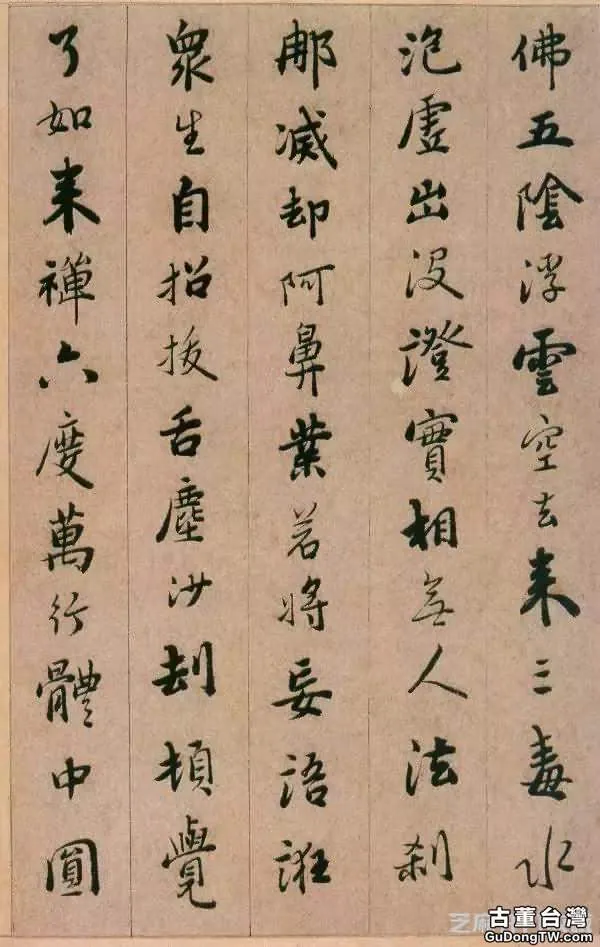 佛五陰浮雲空去来三毒水
泡虛出没證實相無人法剎
那滅却阿鼻業若將妄語誑
衆生自招拔舌塵沙刦頓覺
了如来禪六度萬行體中圓
古董台灣
GuDongTW.com